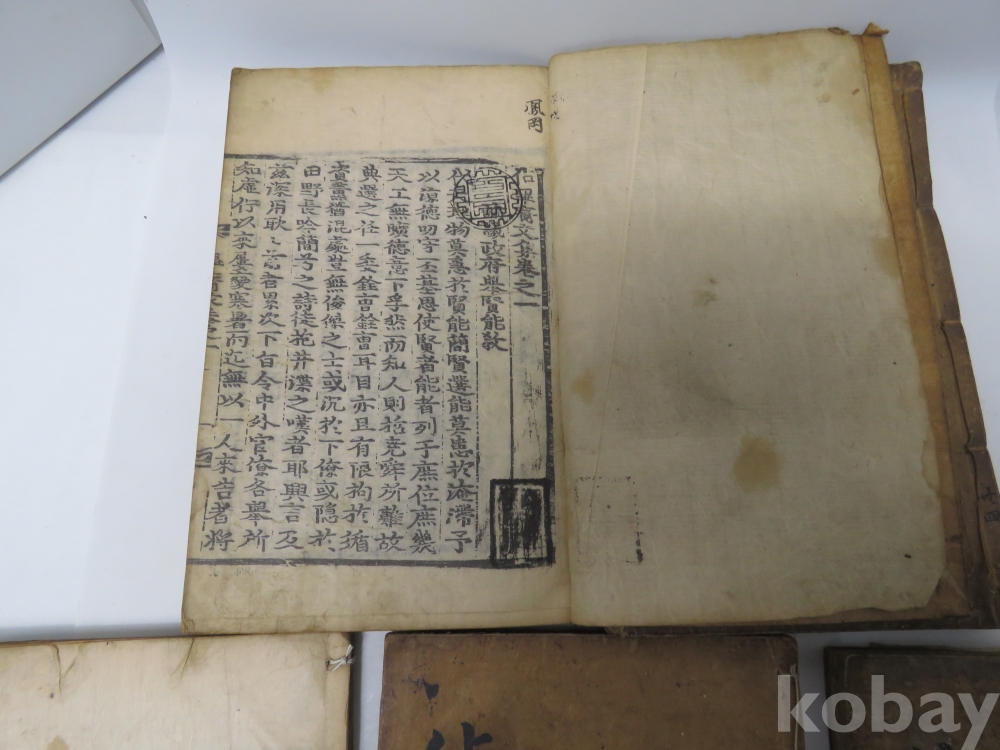 鳳岡
文集卷之一
議政府舉賢能教
物莫急於賢能簡賢選能莫患於淹滯予
以涼德叨守丕基思使賢者能者列于庶位庶幾
天工無曠德意下孚然而知人則哲堯舜所難故
典選之任一委銓曹銓曹耳目亦且有限拘於循
資薰蕕混處豈無俊傑之士或沉於下僚或隱於
田野長吟簡兮之詩徒抱井渫之嘆者耶興言及
茲深用耿耿累次下旨令中外官僚各舉所
知虛佇以來屢變寒暑而迄無以一人來告者將
kobay